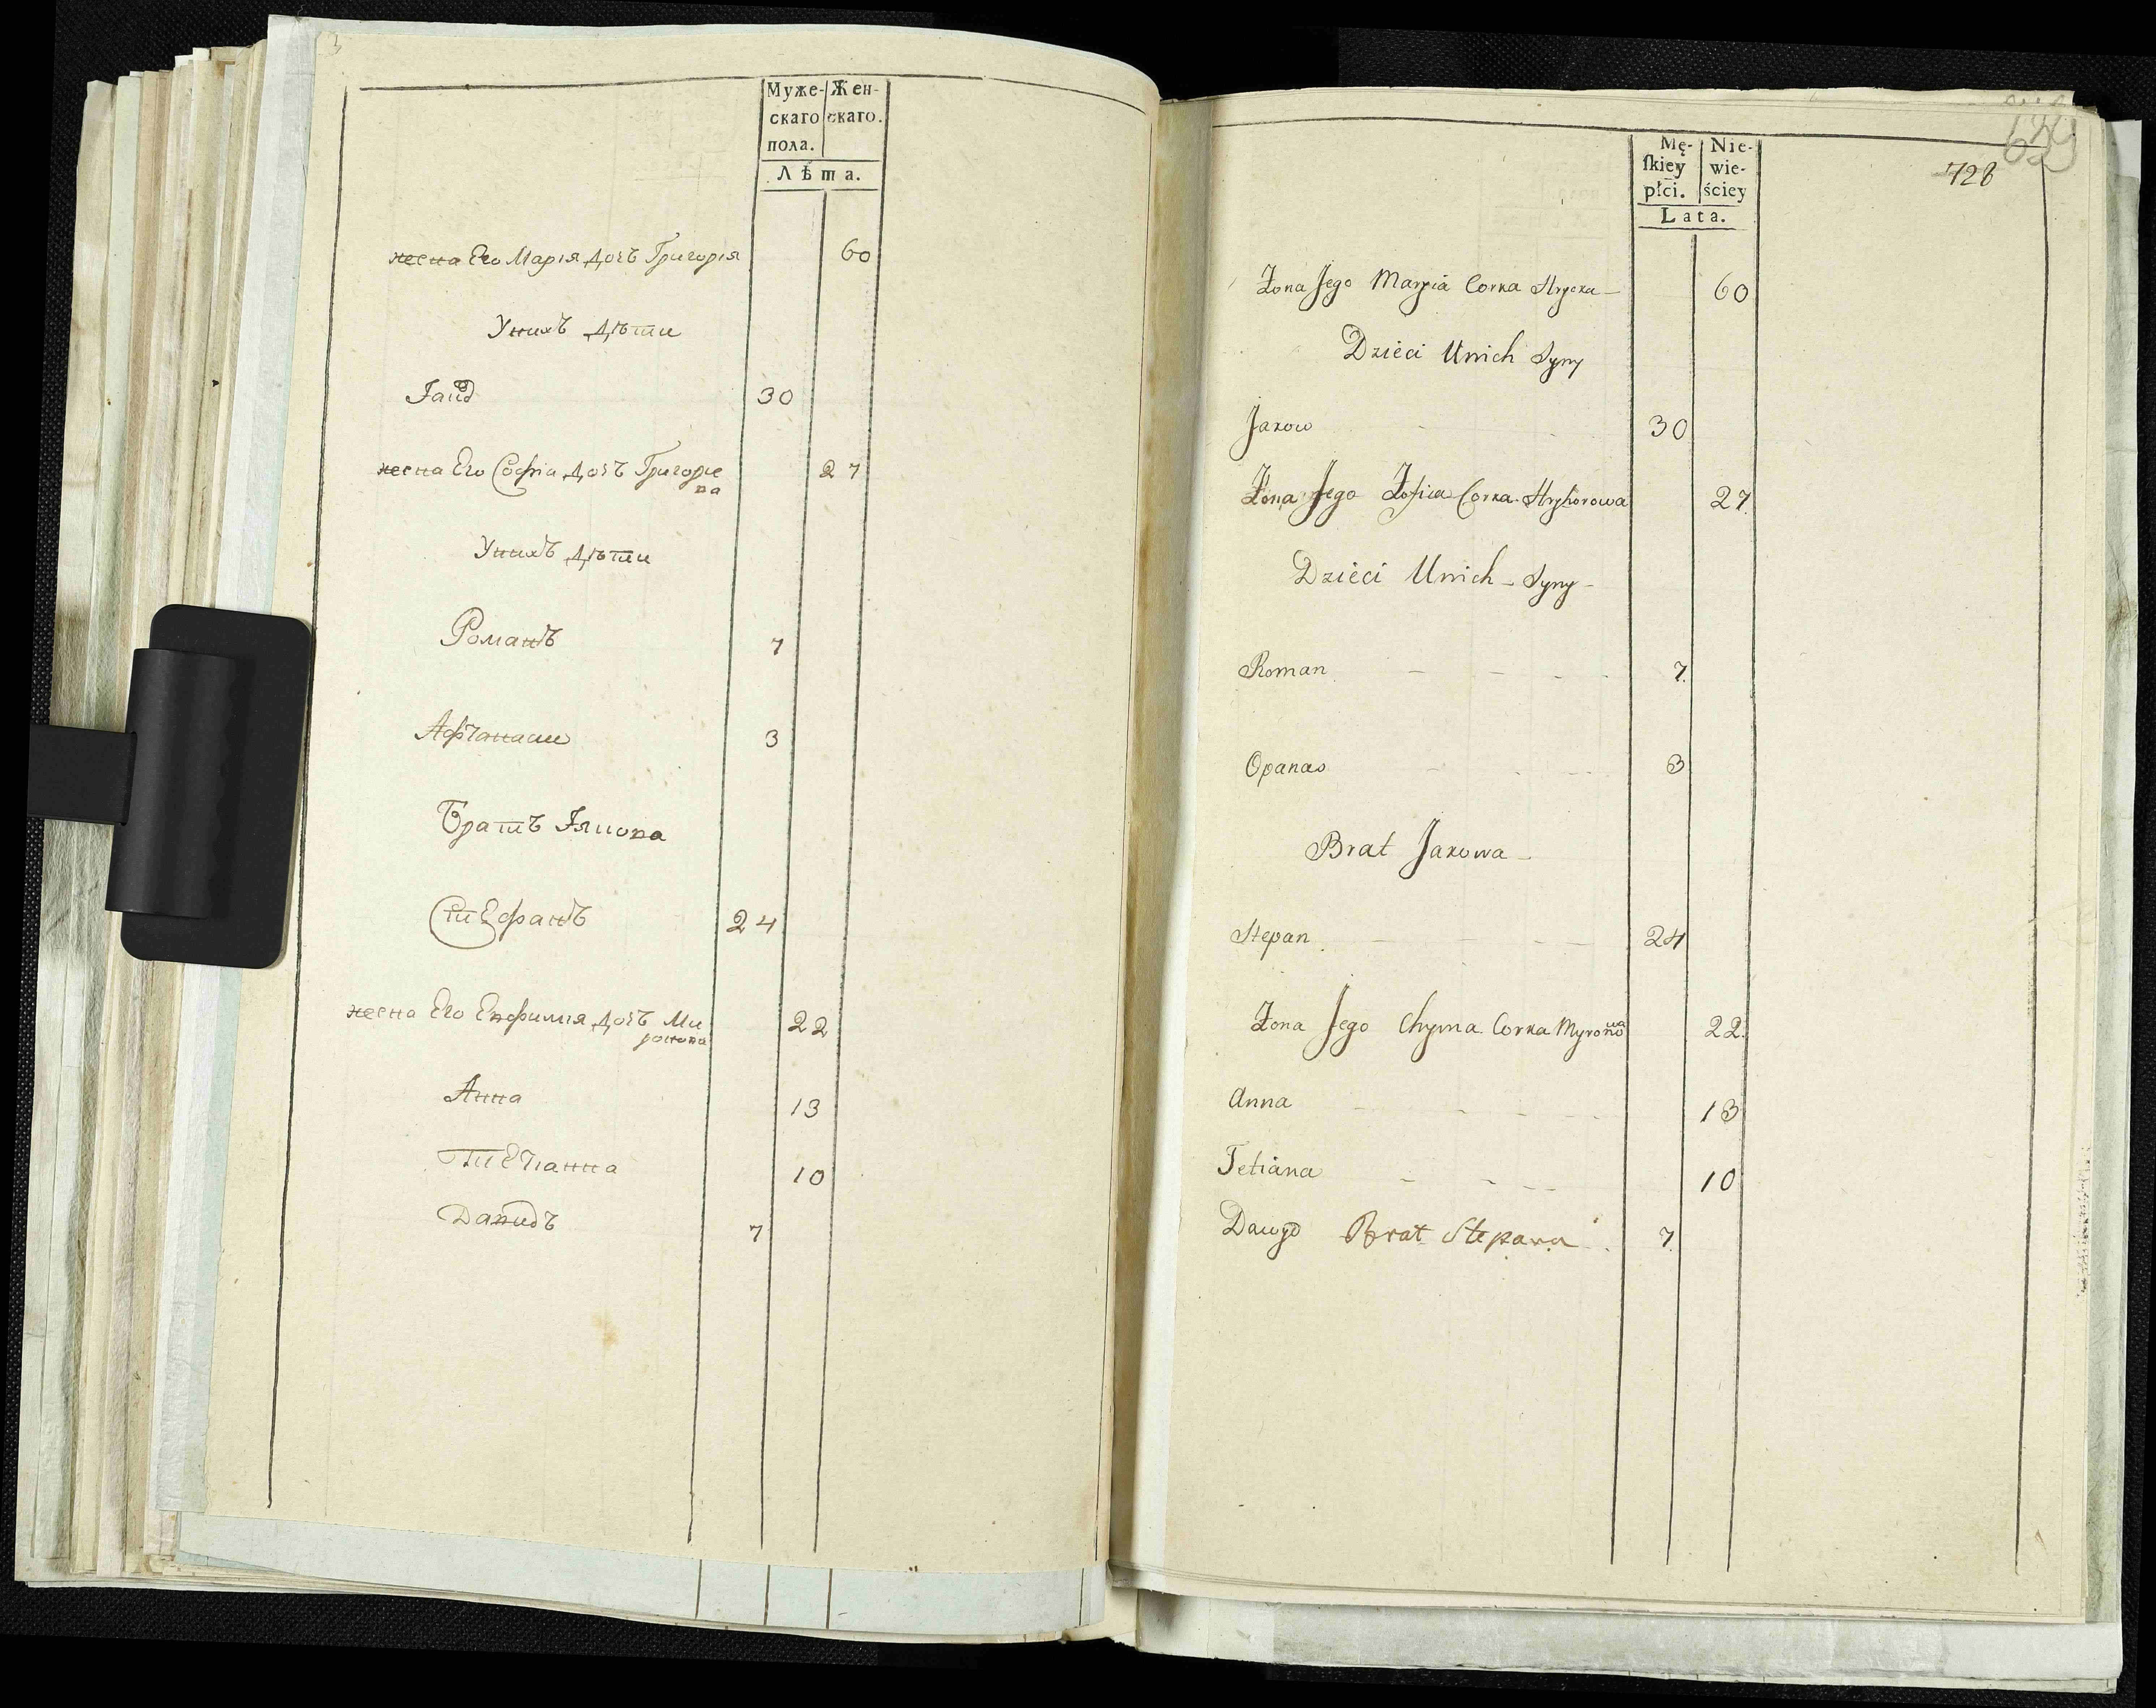 Муже-
скаго
пола.
Жен-
скаго.
Лѣта.
жена Его Марія дочъ Григорія 60
Унихъ дѣти
30
жена Его Софіа дочъ Григорie
ва 27
Унихъ дѣти
Романъ 7
Афтанасии 3
Братъ
Стефанъ 24
жена Его Евфимія дочъ Ми
ронова 22
Анна 13
10
Давидъ 7
Mę-
ſkiey
płci.
Nie-
wie-
ściey
Lata.
728
Zona Jego Maryia Corka Hrycka 60
Dzieci Unich Syny
Jakow 30
Zona Jego Zofiia Corka Hryhorowa 27
Dzieci Unich Syny
Roman 7.
Opanas 3
Brat Jakowa
Stepan 24
Zona Jego Chyma Corka Myronowa 22.
Anna 13
Tetiana 10
Dawyd Brat Stepana 7.